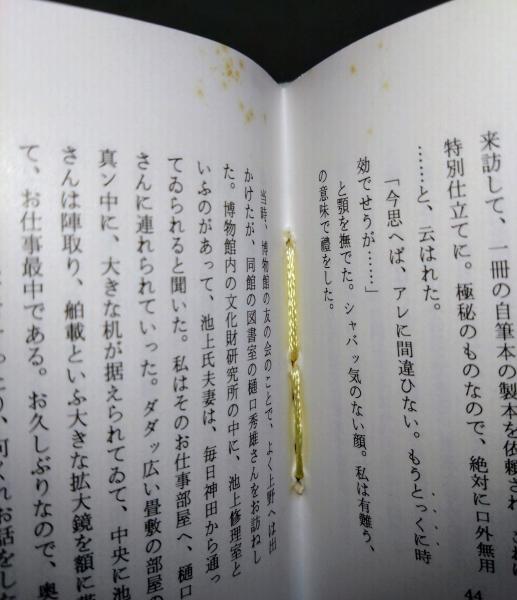 来訪して、一冊の自筆本の製本を依頼され
特別仕立てに。極秘のものなので、絶対に口外無用
……と、云はれた。
「今思へば、アレに間違ひない。もうとっくに時
効でせうが……」
と顎を撫でた。シャバッ気のない顔。私は有難う、
の意味で禮をした。
44
当時、博物館の友の会のことで、よく上野へは出
かけたが、同館の図書室の樋口秀雄さんをお訪ねし
た。博物館内の文化財研究所の中に、池上修理室と
いふのがあって、池上氏夫妻は、毎日神田から通っ
てゐられると聞いた。私はそのお仕事部屋へ、樋口
さんに連れられていった。ダダッ広い畳敷の部屋の
真ン中に、大きな机が据えられてゐて、中央に池
さんは陣取り、舶載といふ大きな拡大鏡を額に
て、お仕事最中である。お久しぶりなので、奥